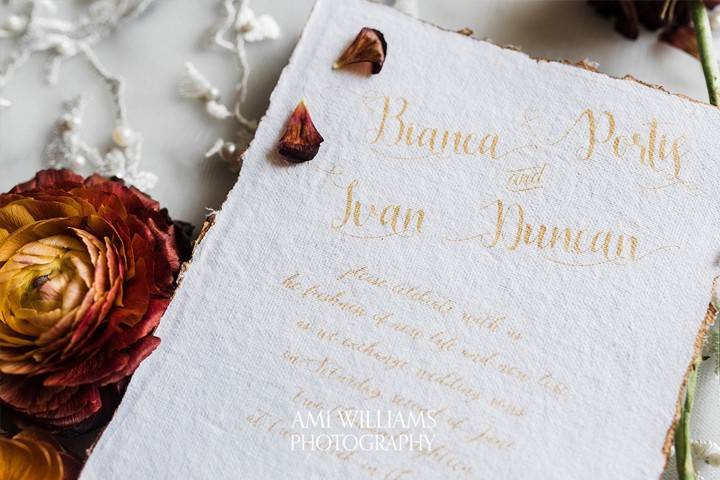 Bianca Portis
and
Ivan Duncan
please celebrate with us
the freshness of new life and new love
as we exchange wedding vows
on Saturday, second of June
at
AMI WILLIAMS
PHOTOGRAPHY